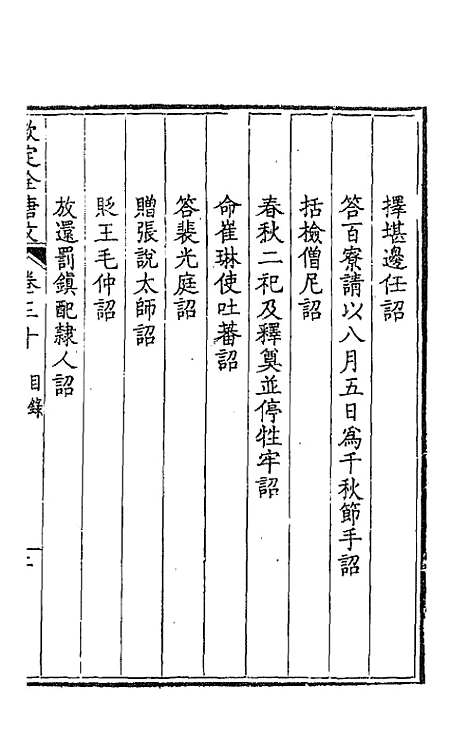 擇堪邊任詔
答百寮請以八月五日爲千秋節手詔
括檢僧尼詔
春秋二祀及釋奠並停牲牢詔
命崔琳使吐蕃詔
答裴光庭詔
贈張說太師詔
貶王毛仲詔
放還罰鎮配隸人詔
欽定全唐文 卷三十 目錄